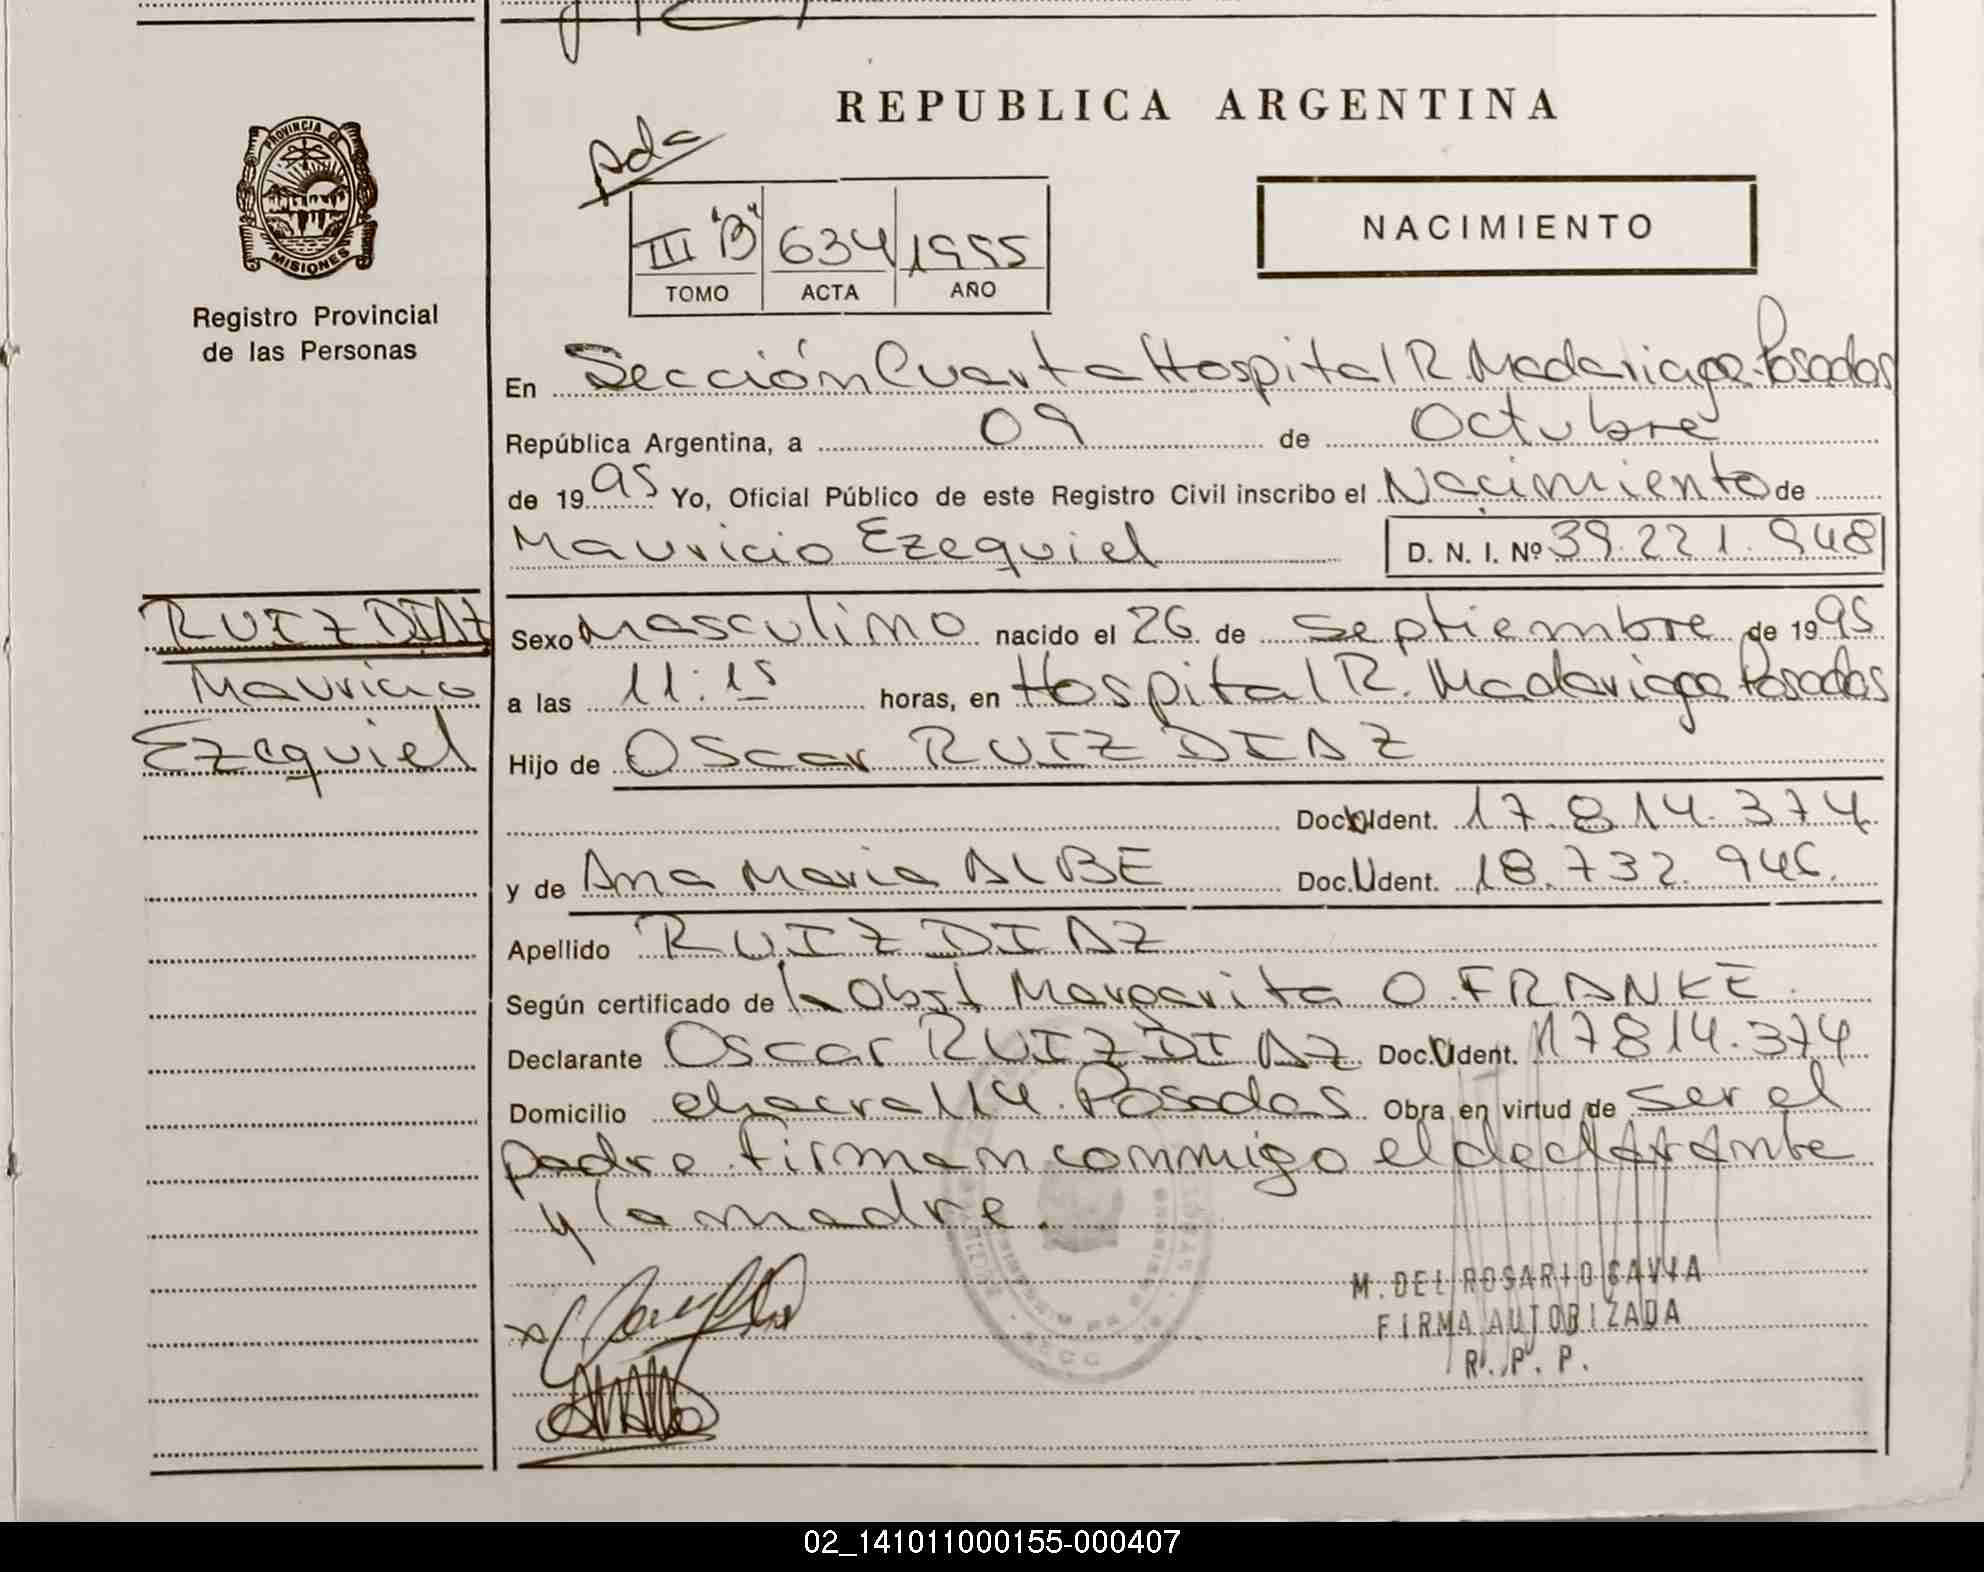 REPUBLICA ARGENTINA
PROVINCIA DE
MISIONES
Registro Provincial
de las Personas
III "B" 634 1995
TOMO ACTA AÑO
NACIMIENTO
En Sección Cuarta Hospital R. Madariaga Posadas
República Argentina, a 09 de Octubre
de 1995 Yo, Oficial Público de este Registro Civil inscribo el Nacimiento de
Mauricio Ezequiel D. N. I. Nº 39.221.948
RUIZ DIAZ
Mauricio
Ezequiel
Sexo Masculino nacido el 26 de Septiembre de 1995
a las 11:15 horas, en Hospital R. Madariaga Posadas
Hijo de Oscar RUIZ DIAZ
Doc. Ident. 17.814.374
y de Ana Maria ALBE Doc. Ident. 18.732.946.
Apellido RUIZ DIAZ
Según certificado de la Obst Margarita O. FRANKE.
Declarante Oscar RUIZ DIAZ Doc. Ident. 17814.374
Domicilio chacra 114. Posadas Obra en virtud de ser el
padre. Firman conmigo el declarante
y la madre.
M. DEL ROSARIO GAVIA
FIRMA AUTORIZADA
R. P. P.
02_141011000155-000407